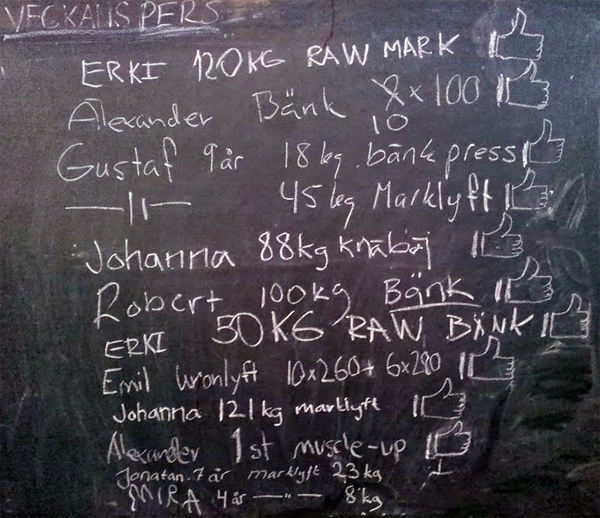 VECKANS PERS
ERKI 120KG RAW MARK
Alexander Bänk 8x100
10
Gustaf 9år 18kg bänkpress
—||— 45kg Marklyft
Johanna 88kg knäböj
Robert 100kg Bänk
ERKI 50KG RAW BÄNK
Emil kronlyft 10x260+ 6x280
Johanna 121kg marklyft
Alexander 1st muscle-up
Jonatan 7år marklyft 23kg
MIRA 4år —"— 8kg